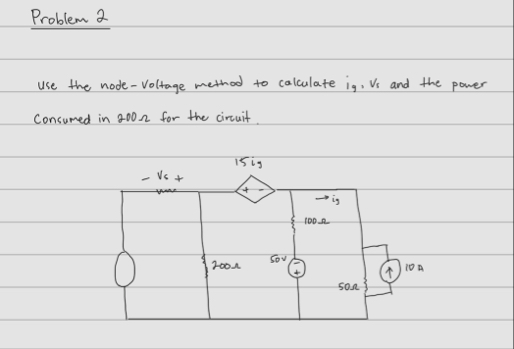 Problem 2
Use the node-voltage method to calculate ig, Vs and the power
Consumed in 200Ω for the circuit.
15ig
- Vs +
→ig
100Ω
200Ω
50V
- +
+ -
50Ω
10A